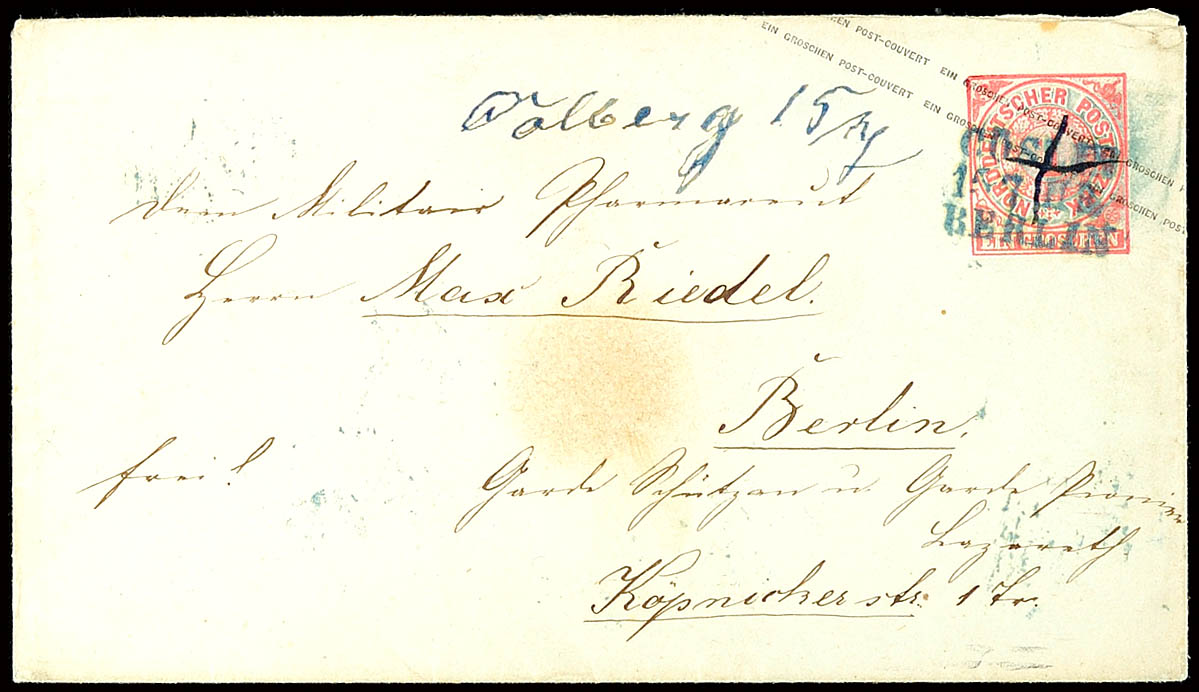 EIN GROSCHEN POST-COUVERT EIN GROSCHEN POST-COUVERT EIN GROSCHEN POST
GROSCHEN POST-COUVERT EIN GROSCHEN POST-COUVERT EIN GROSCHEN
Colberg 15/7
NORDDEUTSCHER POSTBEZIRK
EIN GROSCHEN
COESLIN
15 7 68
BERLIN
Dem Militair Pharmaceut
Herrn Max Riedel.
Berlin.
frei!
Garde Schützen u. Garde Pionier
Lazareth
Köpnickerstr. 1 Tr.